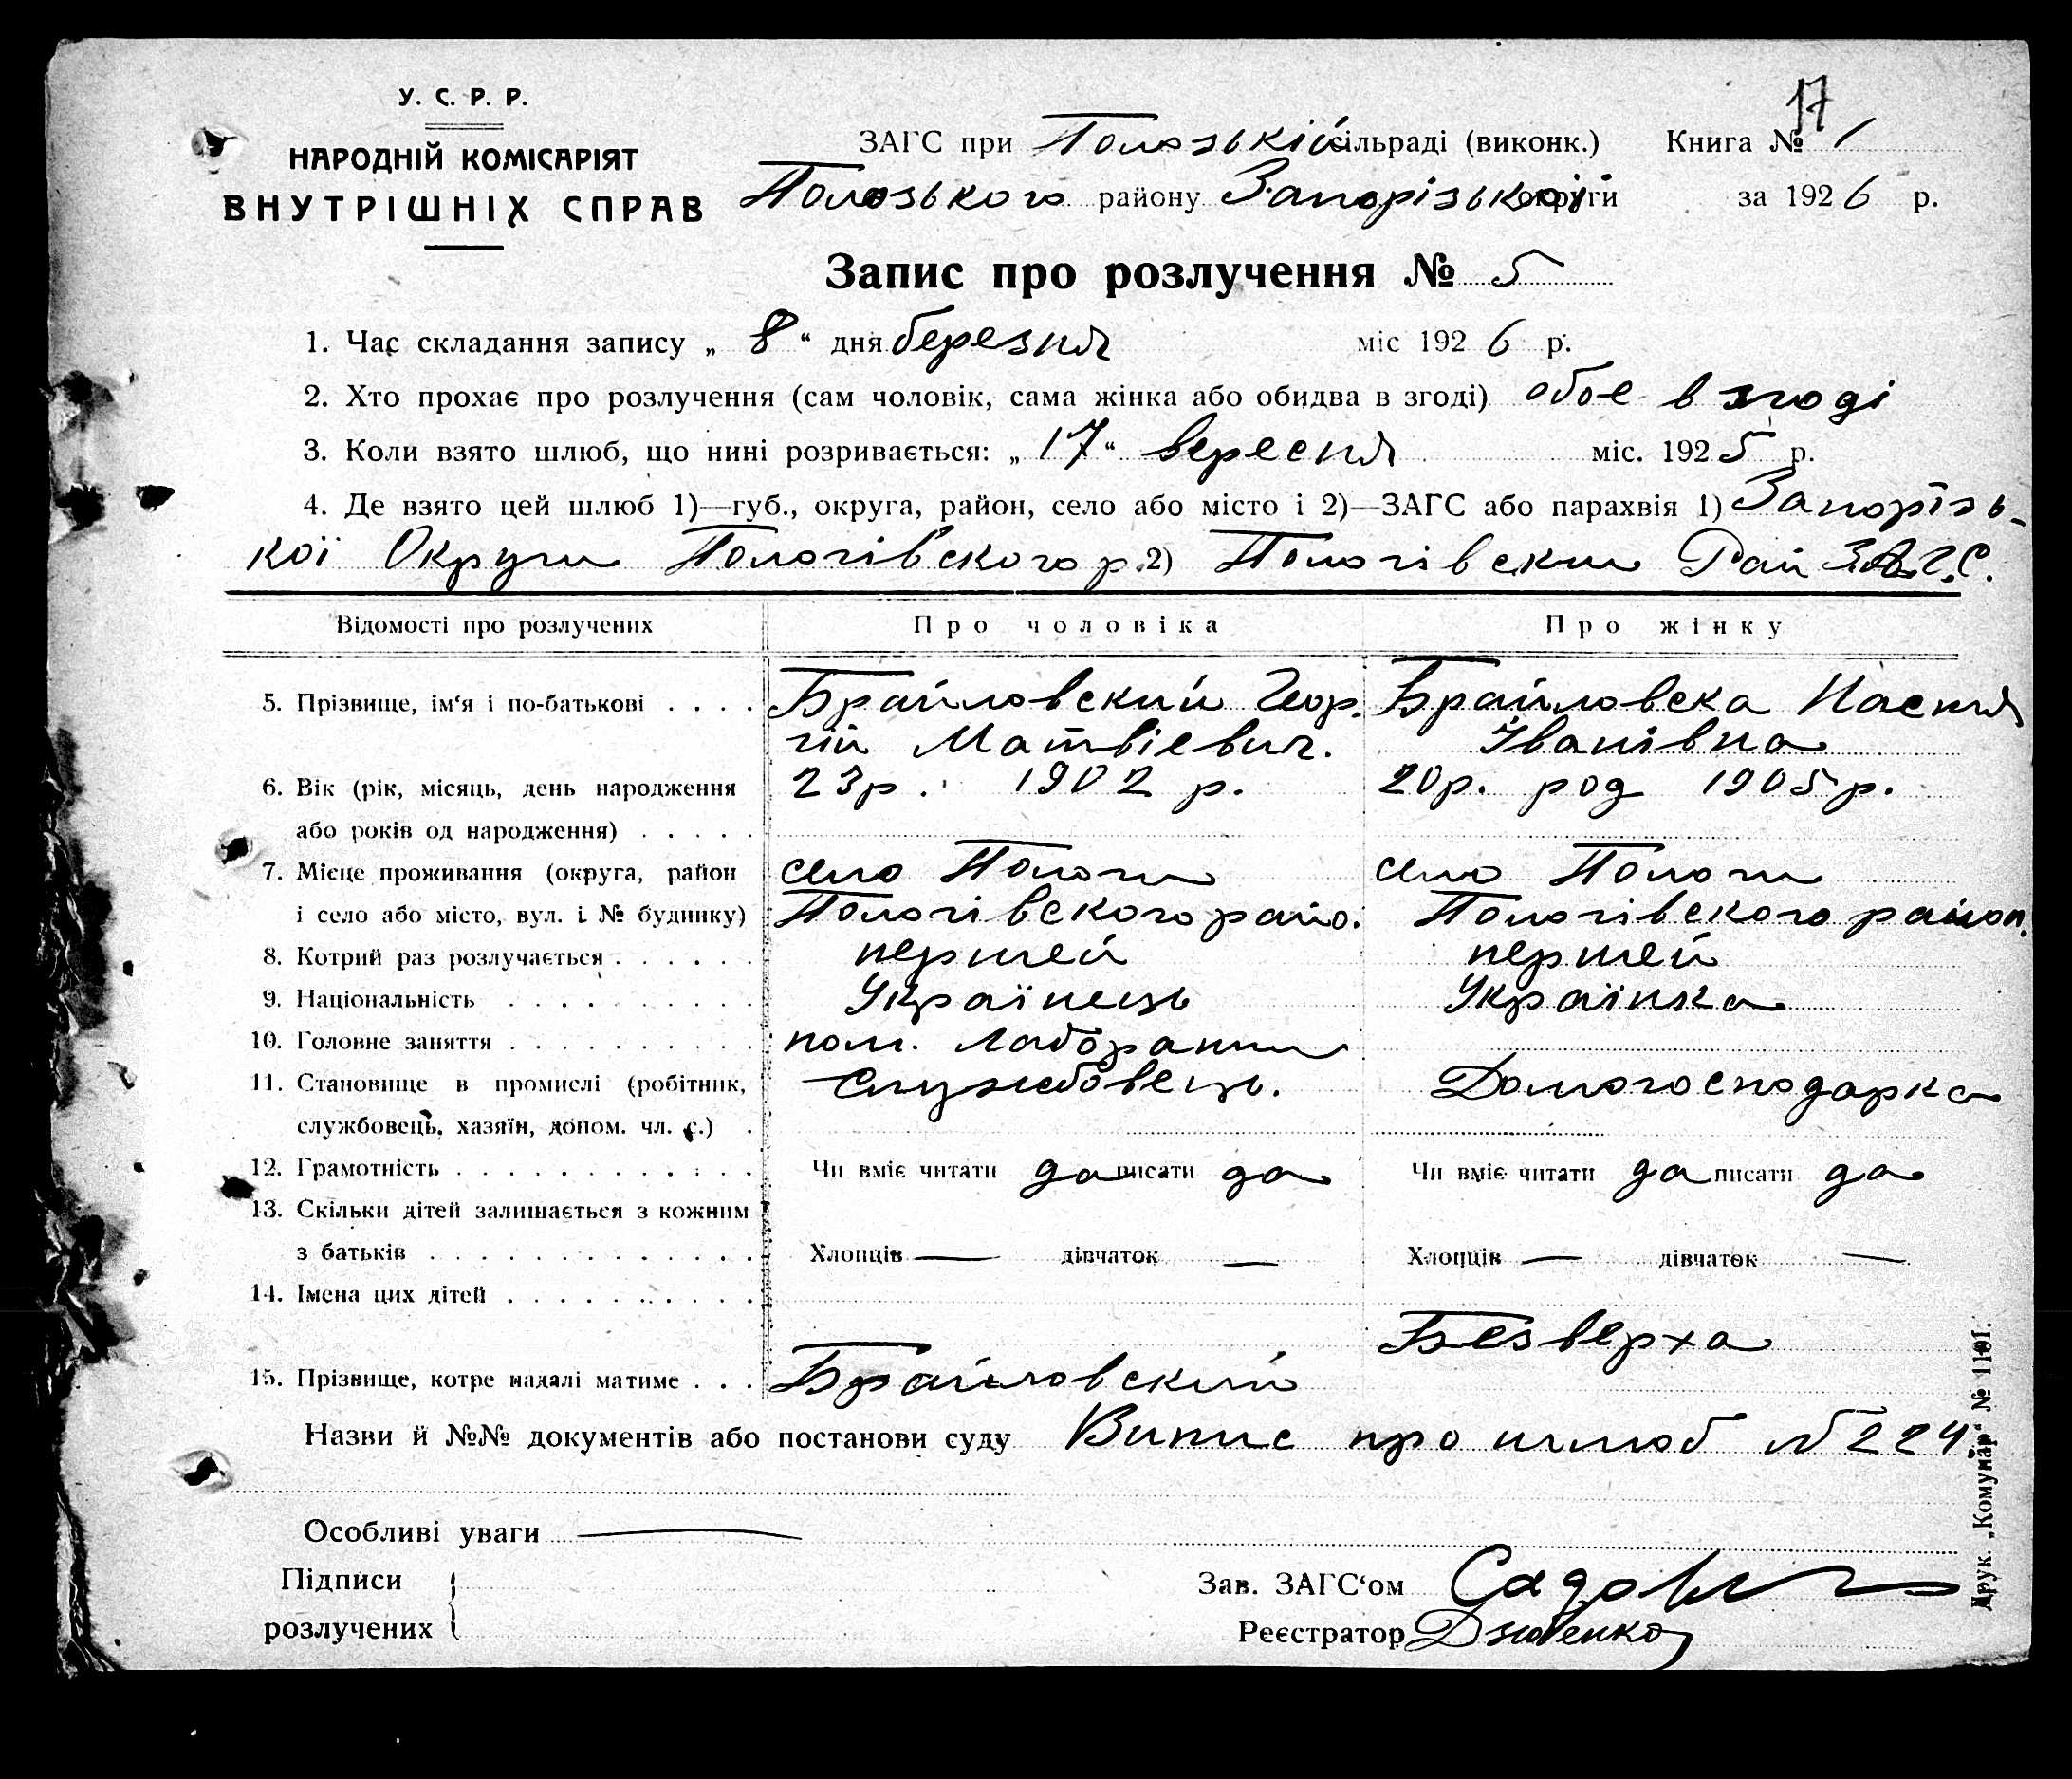 17
У. С. Р. Р.
НАРОДНІЙ КОМІСАРІЯТ
ВНУТРІШНІХ СПРАВ
ЗАГС при Полозькій сільраді (виконк.) Книга № 1
Полозького району Запорізької округи за 1926 р.
Запис про розлучення № 5
1. Час складання запису „ 8 “ дня березня міс 1926 р.
2. Хто прохає про розлучення (сам чоловік, сама жінка або обидва в згоді) обое в згоді
3. Коли взято шлюб, що нині розривається: „ 17 “ вересня міс. 1925 р.
4. Де взято цей шлюб 1)—губ., округа, район, село або місто і 2)—ЗАГС або парахвія 1) Запорізь-
кої Округи Пологівского р. 2) Пологівским Рай ЗАГС.
Відомості про розлучених Про чоловіка Про жінку
5. Прізвище, ім‘я і по-батькові . . . . Брайловский Геор. Брайловска Настя
гій Матвіевич. Іванівна
6. Вік (рік, місяць, день народження 23р. 1902 р. 20р. род 1905р.
або років од народження) . . . . .
7. Місце проживання (округа, район село Пологи село Пологи
і село або місто, вул. і № будинку) Пологівского райо. Пологівского район.
8. Котрий раз розлучається . . . . . . першей першей
9. Національність . . . . . . . . . Українець Українка
10. Головне заняття . . . . . . . . . . пом. Лаборанта
11. Становище в промислі (робітник, Службовець. Домогосподарка
службовець, хазяїн, допом. чл. с.) .
12. Грамотність . . . . . . . . . . . . Чи вміє читати да писати да Чи вміє читати да писати да
13. Скільки дітей залишається з кожним
з батьків . . . . . . . . . . . . . Хлопців — дівчаток — Хлопців — дівчаток —
14. Імена цих дітей . . . . . . . . . .
Безверха
15. Прізвище, котре надалі матиме . . . Брайловский
Назви й №№ документів або постанови суду Випис про шлюб № 224
Особливі уваги —
Підписи
розлучених
Зав. ЗАГС‘ом
Реєстратор
Друк. „Комунар“ № 1101.